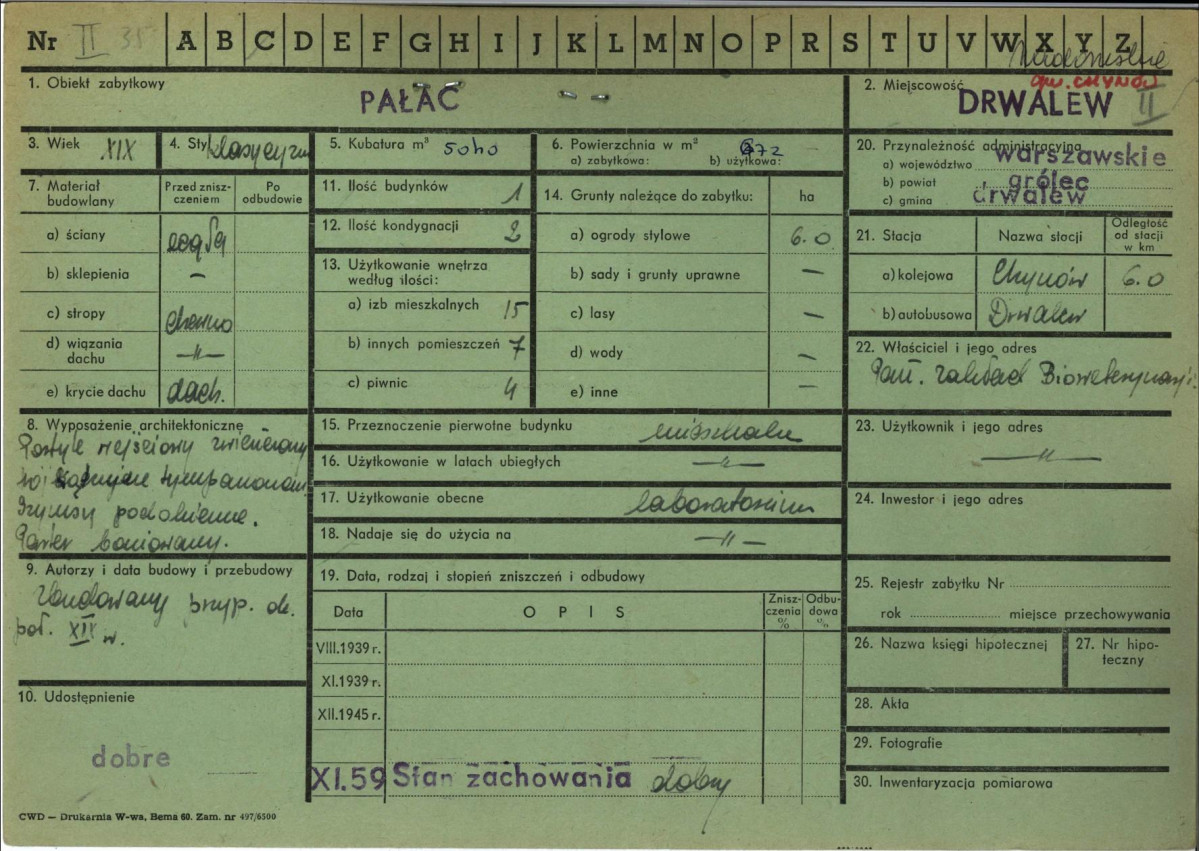 Nr II 35 A B C D E F G H I J K L M N O P R S T U V W X Y Z
gm. CHYNÓW
1. Obiekt zabytkowy
PAŁAC
2. Miejscowość
DRWALEW II
3. Wiek XIX
4. Styl klasycyzm
5. Kubatura m³ 5040
6. Powierzchnia w m²
a) zabytkowa: b) użytkowa: 672
20. Przynależność administracyjna
a) województwo warszawskie
b) powiat grójec
c) gmina drwalew
7. Materiał budowlany
Przed zniszczeniem
Po odbudowie
a) ściany cegła
b) sklepienia —
c) stropy drewno
d) wiązania dachu —"—
e) krycie dachu dach.
11. Ilość budynków 1
12. Ilość kondygnacji 2
13. Użytkowanie wnętrza według ilości:
a) izb mieszkalnych 15
b) innych pomieszczeń 7
c) piwnic 4
14. Grunty należące do zabytku: ha
a) ogrody stylowe 6.0
b) sady i grunty uprawne —
c) lasy —
d) wody —
e) inne —
21. Stacja
Nazwa stacji
Odległość od stacji w km
a) kolejowa Chynów 6.0
b) autobusowa Drwalew
22. Właściciel i jego adres
Pań. Zakład Bioweterynaryj.
8. Wyposażenie architektoniczne
Portyk wejściowy zwieńczony
trójkątnym tympanonem
Gzymsy podokienne.
Parter boniowany.
15. Przeznaczenie pierwotne budynku mieszkalne
16. Użytkowanie w latach ubiegłych —"—
17. Użytkowanie obecne laboratorium
18. Nadaje się do użycia na —"—
23. Użytkownik i jego adres
—"—
24. Inwestor i jego adres
9. Autorzy i data budowy i przebudowy
Zbudowany przyp. ok.
poł. XIX w.
19. Data, rodzaj i stopień zniszczeń i odbudowy
Data
OPIS
Zniszczenia %
Odbudowa %
VIII.1939 r.
XI.1939 r.
XII.1945 r.
XI.59 Stan zachowania dobry
25. Rejestr zabytku Nr
rok miejsce przechowywania
26. Nazwa księgi hipotecznej
27. Nr hipoteczny
28. Akta
29. Fotografie
30. Inwentaryzacja pomiarowa
10. Udostępnienie
dobre
CWD — Drukarnia W-wa, Bema 60. Zam. nr 497/6500